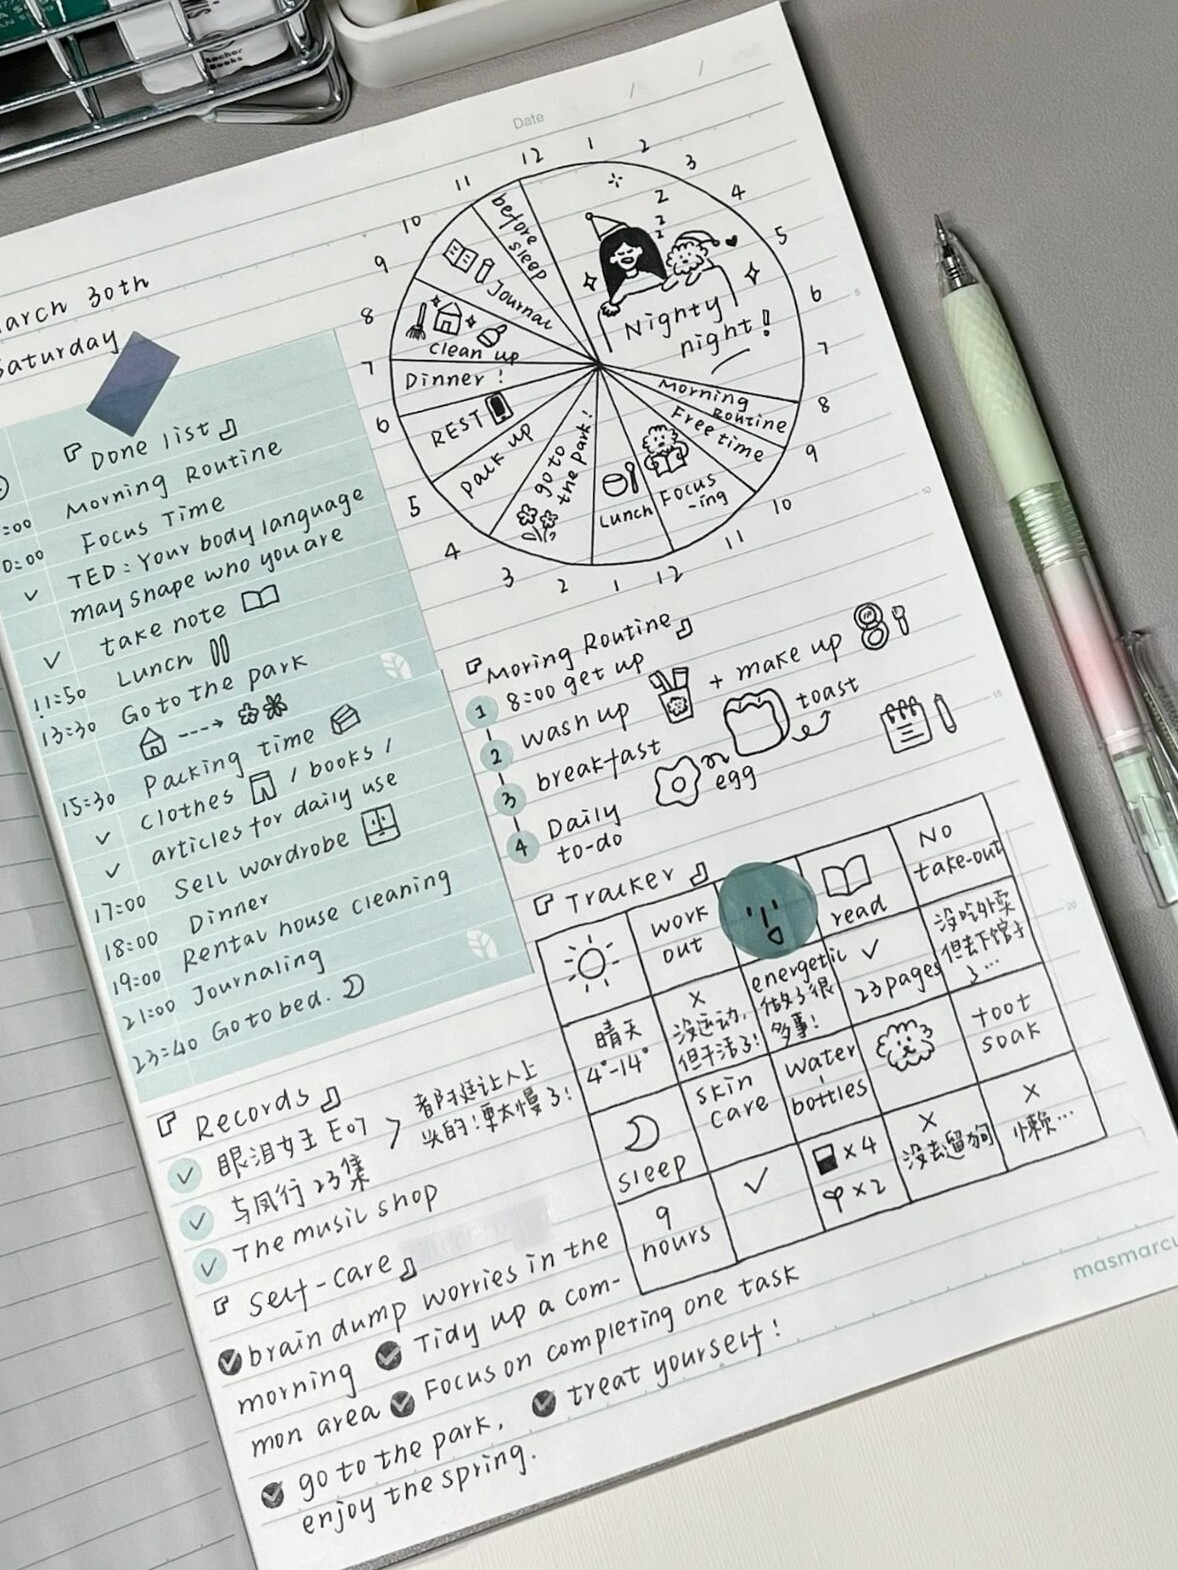 Date / /
arch 30th
Saturday
『Done list』
:00 Morning Routine
0:00 Focus Time
✓ TED: Your body language
may shape who you are
✓ take note
11:50 Lunch
13:30 Go to the park
15:30 Packing time
✓ clothes / books /
✓ articles for daily use
17:00 Sell wardrobe
18:00 Dinner
19:00 Rental house cleaning
21:00 Journaling
23:40 Go to bed.
12 1 2 3 4 5 6 7 8 9 10 11 12 1 2 3 4 5 6 7 8 9 10 11
z
z
z
Nighty
night!
Morning
Routine
Free time
Focus
-ing
Lunch
go to
the park!
pack up
REST
Dinner!
clean up
Journal
before
sleep
『Moring Routine』
1 8:00 get up
2 wash up + make up
3 breakfast toast
egg
4 Daily
to-do
『Tracker』
work
out
read
No
take-out
晴天
4°-14°
×
没运动,
但干活了!
energetic
做了很
多事!
✓
23 pages
没吃外卖
但去下馆子
了…
sleep
skin
care
water
bottles
foot
soak
9
hours
✓
×4
×2
×
没去遛狗
×
懒…
『Records』
✓ 眼泪女王 E07
✓ 与凤行 23集
> 都挺让人上
头的!更太慢了!
✓ The music shop
『Self-care』
brain dump worries in the
morning Tidy up a com-
mon area Focus on completing one task
go to the park, treat yourself!
enjoy the spring.
masmarcu